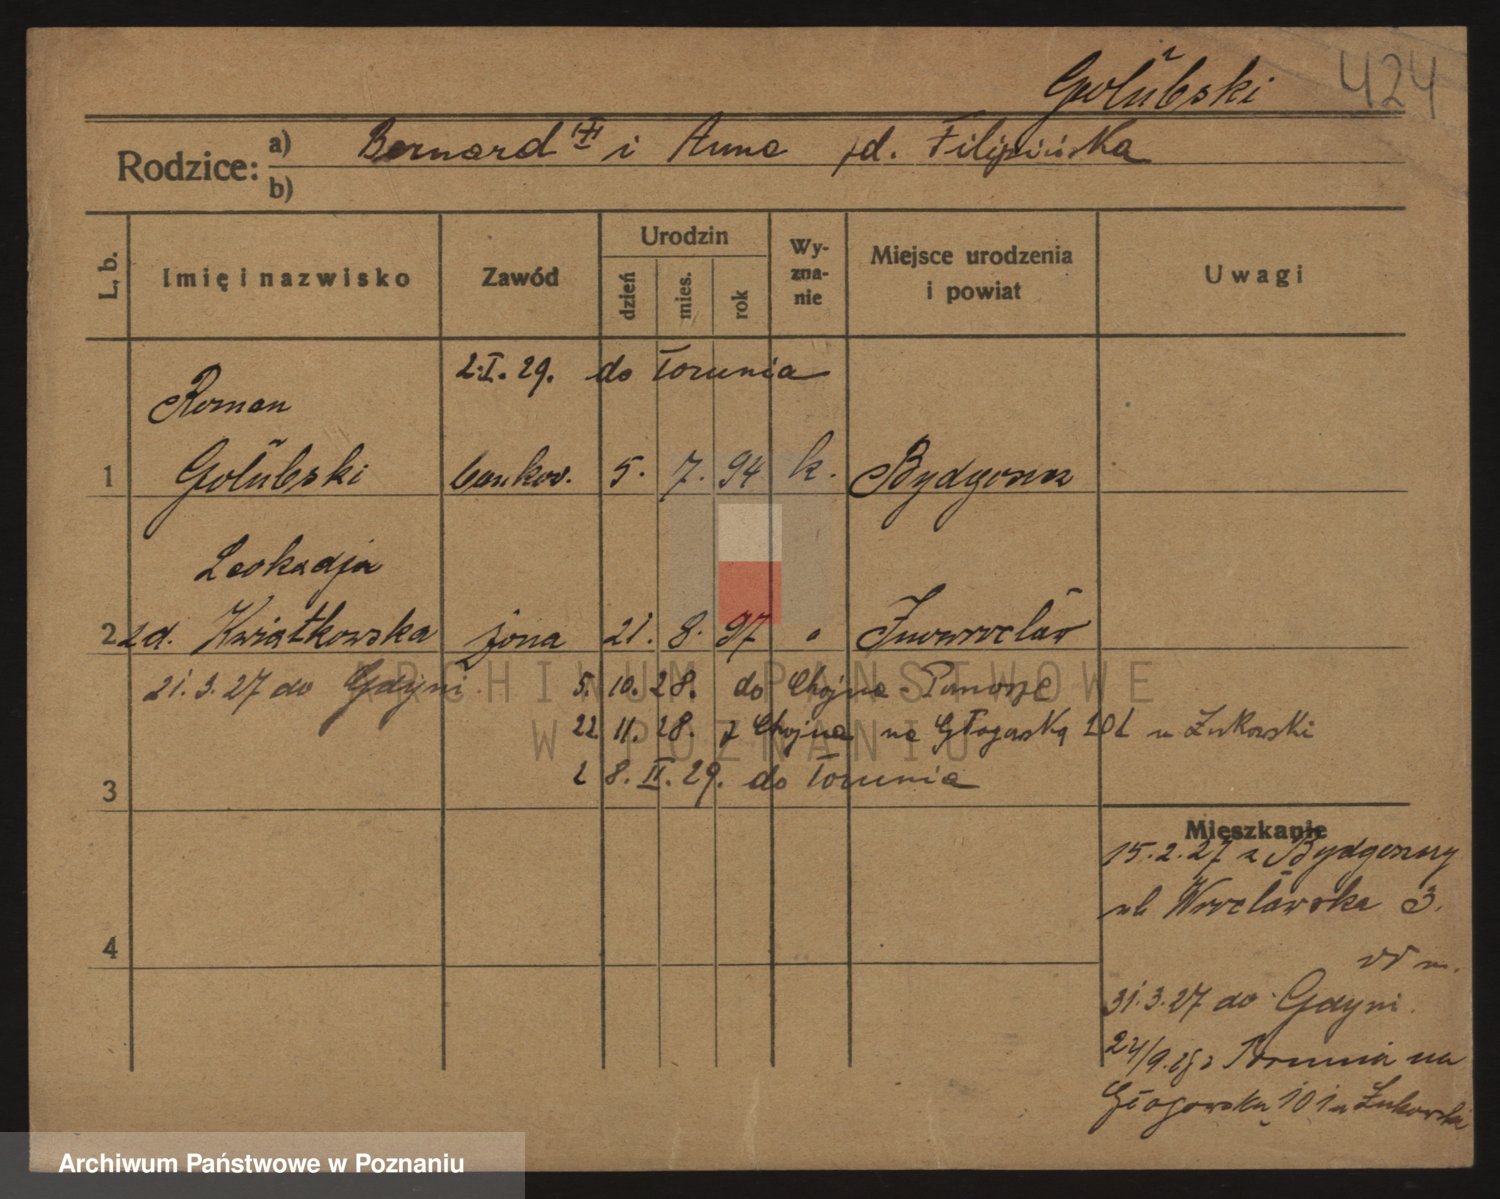 Golubski 424
Rodzice: a) Bernard i Anna zd. Filipińska
b)
L. b. Imię i nazwisko Zawód Urodzin dzień mies. rok Wyznanie Miejsce urodzenia i powiat Uwagi
2.I.29. do Torunia
Roman
1 Golubski bankow. 5. 7. 94 k. Bydgoszcz
Leokadja
2 zd. Kwiatkowska żona 21. 8. 97 Inowrocław
21.3.27 do Gdyni 5. 10. 28. do Chojna
22 11. 28. z Chojna na Głogaską 101 u Żukowski
3 8. II. 29. do Torunia
Mieszkanie
15.2.27 z Bydgoszczy
ul. Wrocławska 3.
4
31.3.27 do Gdyni.
24/9. z Torunia na
Głogowską 101 u Żukowski
ARCHIWUM PAŃSTWOWE
W POZNANIU
Archiwum Państwowe w Poznaniu